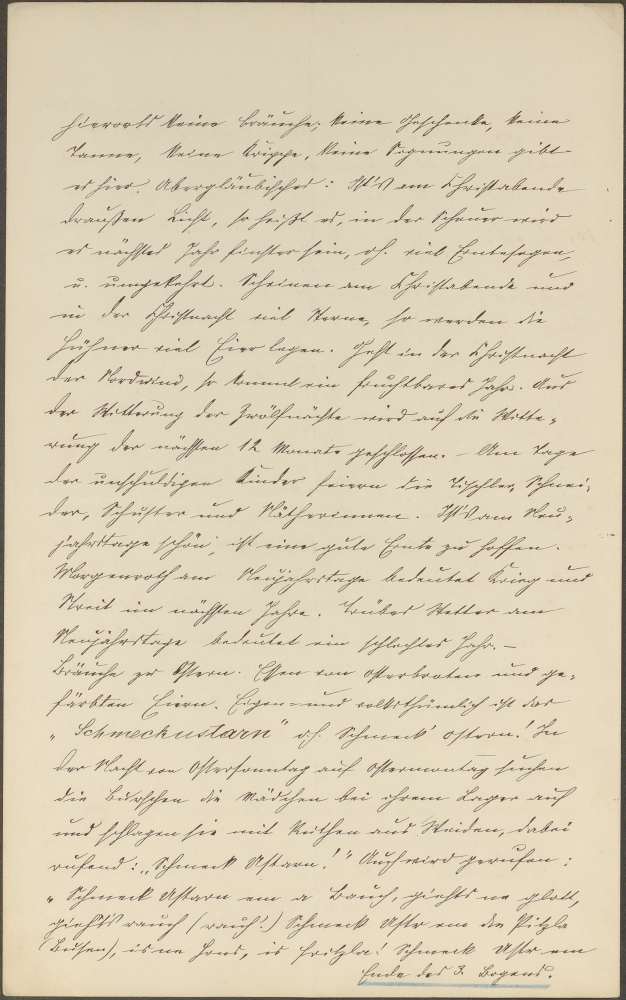 hierorts keine Bräuche; keine Geschenke, keine
Tanne, keine Krippe, keine Segnungen gibt
es hier. Abergläubisches: Ist's am Christabende
draußen Licht, so heißt es, in der Scheuer wird
es nächstes Jahr finster sein, dh. viel Erntesegen,
u. umgekehrt. Scheinen am Christabende und
in der Christnacht viel Sterne, so werden die
Hühner viel Eier legen. Geht in der Christnacht
der Nordwind, so kommt ein fruchtbares Jahr. Aus
der Witterung der Zwölfnächte wird auf die Witte-
rung der nächsten 12 Monate geschlossen. – Am Tage
der unschuldigen Kinder feiern die Tischler, Schnei-
der, Schuster und Nätherinnen. Ist's am Neu-
jahrstage schön, ist eine gute Ernte zu hoffen.
Morgenroth am Neujahrstage bedeutet Krieg und
Streit im nächsten Jahre. Trübes Wetter am
Neujahrstage bedeutet ein schlechtes Jahr. –
Bräuche zu Ostern. Essen von Osterbroten und ge-
färbten Eiern. Eigen- und volksthümlich ist das
„Schmeckustarn" dh. Schmeck' ostern! In
der Nacht von Ostersonntag auf Ostermontag suchen
die Burschen die Mädchen bei ihrem Lager auf
und schlagen sie mit Ruthen aus Weiden, dabei
rufend: „Schmeck Ustarn!" Auch wird gerufen:
„Schmeck Ustarn em a Bauch, giehts ne glatt,
giehts rauch (rauh!) Schmeck Ustr em die Pitzla
(Busen), is ne is Schmeck Ustr em
Ende des 3. Bogens.